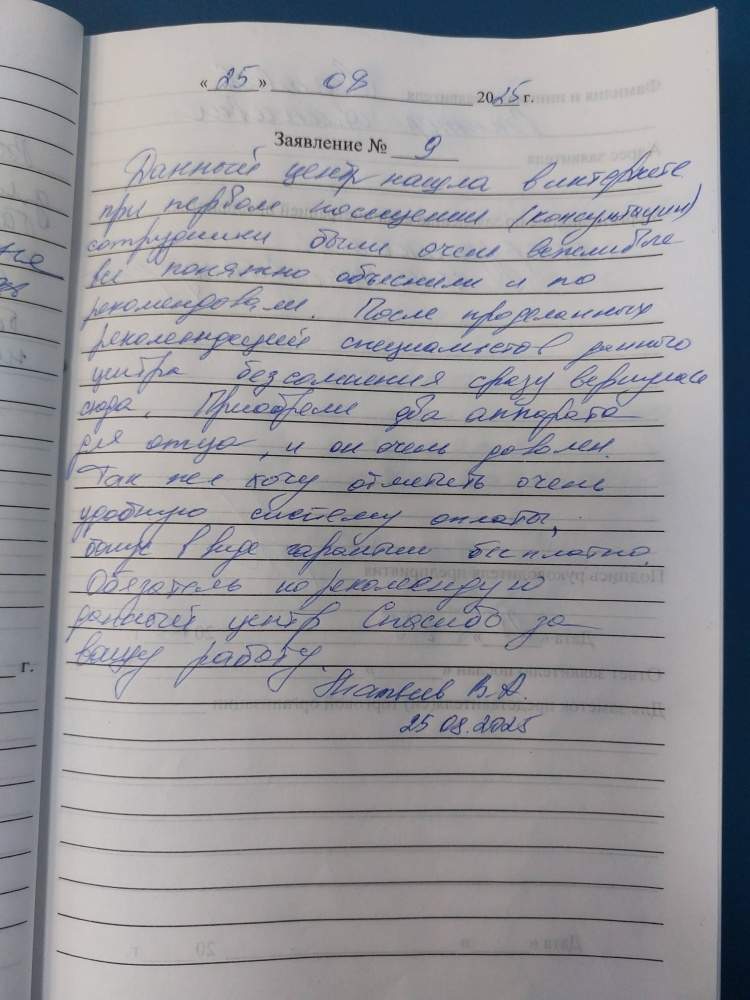 « 25 » 08 2025 г.
Заявление № 9
Данный центр нашла в интернете
при первом посещении (консультации)
сотрудники были очень вежливые
все понятно объяснили и по
рекомендовали. После проделанных
рекомендаций специалистов данного
центра без сомнения сразу вернулась
сюда. Приобрели два аппарата
для отца, и он очень доволен.
Так же хочу отметить очень
удобную систему оплаты,
бонус в виде гарантии бесплатно.
Обязатель но рекомендую
данный центр Спасибо за
вашу работу.
В.А.
25 08.2025
г.